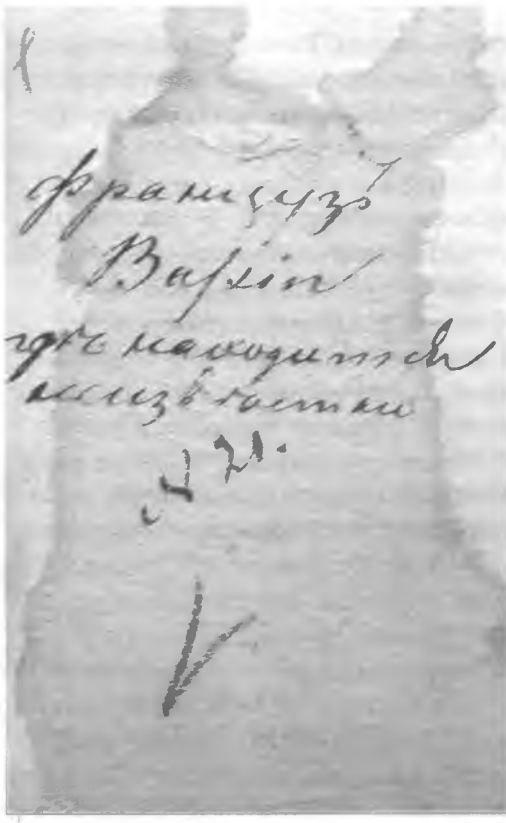 французъ
Bassin
гдѣ находится
неизвѣстно
№ 21.